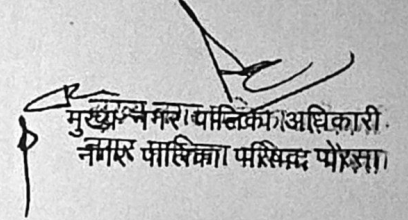 मुख्य नगर पालिका अधिकारी
नगर पालिका परिषद पोरसा